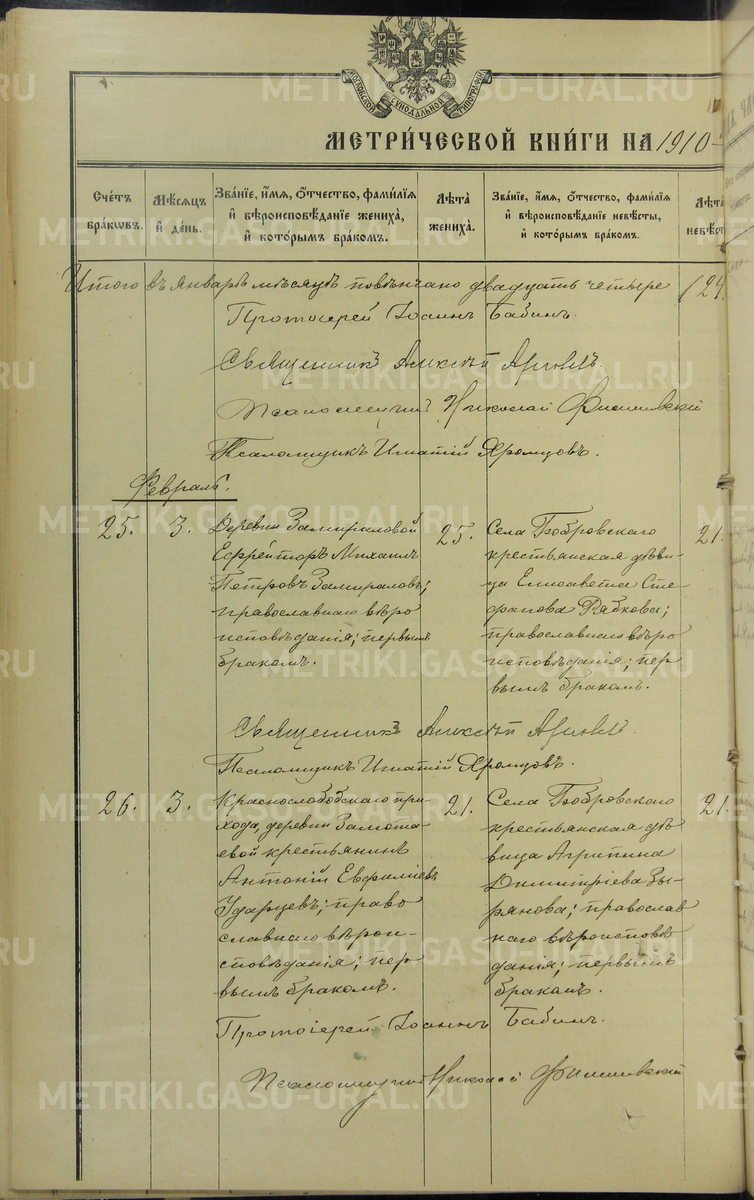 МОСКОВСКОЙ СѴНОДАЛЬНОЙ ТИПОГРАФІИ
МЕТРИ́ЧЕСКОЙ КНИ́ГИ НА 1910
Сче́тъ бра́кωвъ.
Мѣ́сѧцъ и҆ де́нь.
Зва́нїе, и҆́мѧ, ѻ҆́тчество, фамилїѧ и҆ вѣроисповѣ́данїе жениха̀, и҆ кото́рымъ бра́комъ.
Лѣта̀ жениха̀.
Зва́нїе, и҆́мѧ, ѻ҆́тчество, фамилїѧ и҆ вѣроисповѣ́данїе невѣ́сты, и҆ кото́рымъ бра́комъ.
Лѣта̀ невѣст
Итого въ январѣ мѣсяцѣ повѣнчано двадцать четыре (24)
Протоіерей Іоаннъ Бабинъ.
Священникъ Алексѣй
Псаломщикъ Николай
Псаломщикъ Игнатій Яромцовъ.
Февраль.
25. 3.
Деревни Замираловой
Ефрейторъ Михаилъ
Петровъ Замираловъ;
православнаго вѣро
исповѣданія; первымъ
бракомъ.
25.
Села Бобровскаго
крестьянская дѣви-
ца Елисавета Сте-
фанова Рябкова;
православнаго вѣро
исповѣданія; пер
вымъ бракомъ.
21.
Священникъ Алексѣй
Псаломщикъ Игнатій Яромцовъ.
26. 3.
Краснослободскаго при-
хода, деревни Замота-
евой крестьянинъ
Антоній Евфиміевъ
Ударцевъ; право
славнаго вѣрои-
сповѣданія; пер
вымъ бракомъ.
21.
Села Бобровскаго
крестьянская дѣ-
вица Агрипина
Димитріева Зы-
рянова; православ
наго вѣроисповѣ
данія; первымъ
бракомъ.
21.
Протоіерей Іоаннъ Бабинъ.
Псаломщикъ Николай
METRIKI.GASO-URAL.RU